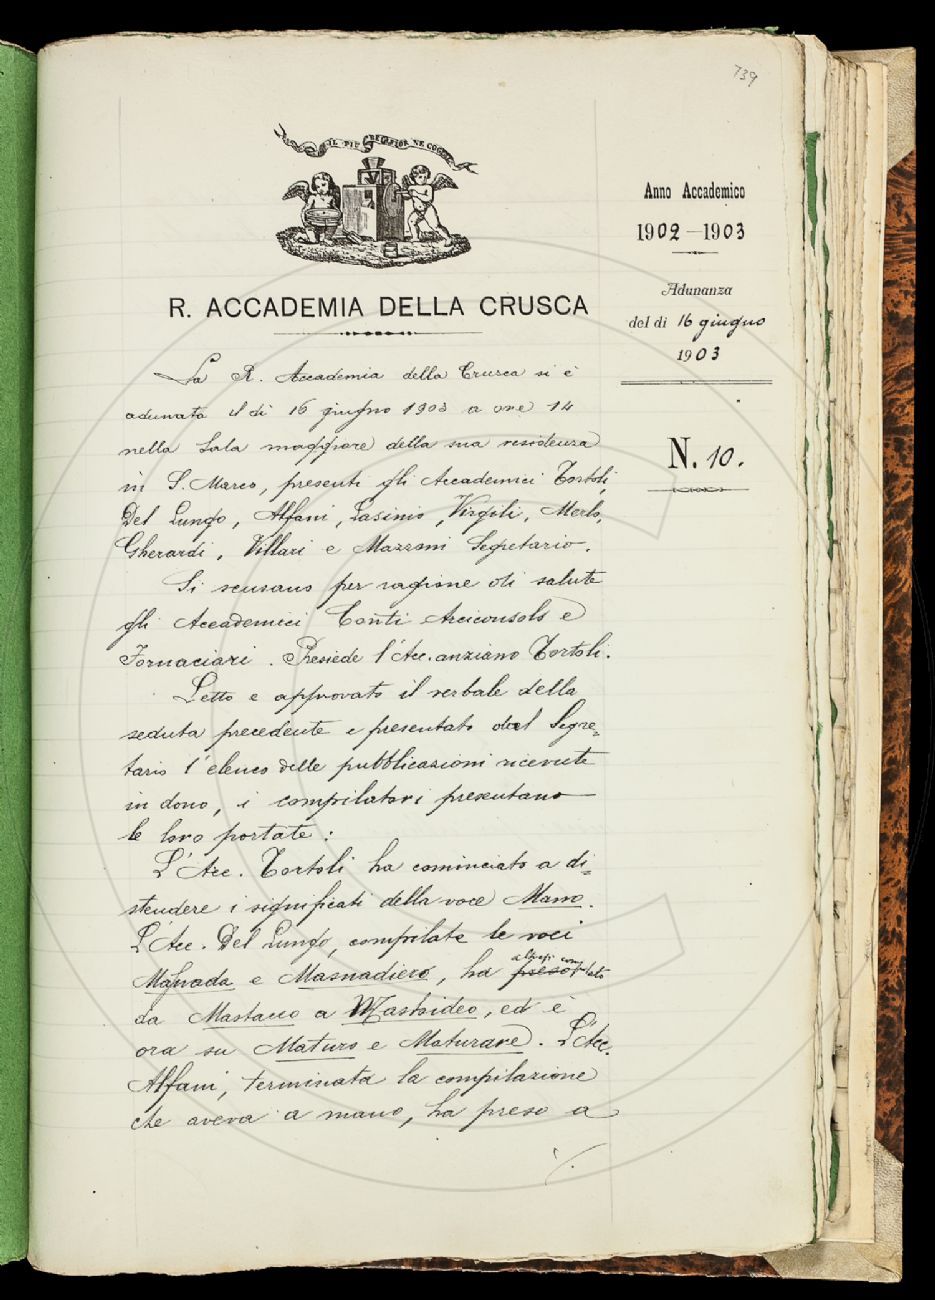 739
IL PIÙ BEL FIOR NE COGLIE
Anno Accademico
1902-1903
Adunanza
del dì 16 giugno
1903
N. 10.
R. ACCADEMIA DELLA CRUSCA
La R. Accademia della Crusca si è
adunata il dì 16 giugno 1903 a ore 14
nella Sala maggiore della sua residenza
in S. Marco, presenti gli Accademici Tortoli,
Del Lungo, Alfani, Lasinio, Virgili, Merlo,
Gherardi, Villari e Mazzoni Segretario.
Si scusano per ragione di salute
gli Accademici Conti Arciconsolo e
Fornaciari. Presiede l'Acc. anziano Tortoli.
Letto e approvato il verbale della
seduta precedente e presentato dal Segre=
tario l'elenco delle pubblicazioni ricevute
in dono, i compilatori presentano
le loro portate:
L'Acc. Tortoli ha cominciato a di=
stendere i significati della voce Mano.
L'Acc. Del Lungo, compilate le voci
Masnada e Masnadiero, ha
da Mastacco a Mastrideo, ed è
ora su Maturo e Maturare. L'Acc.
Alfani, terminata la compilazione
che aveva a mano, ha preso a
./.